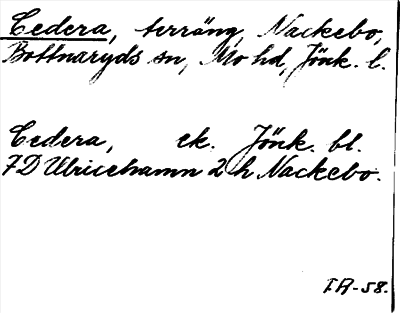 Cedera, terräng, Nackebo,
Bottnaryds sn, Mo hd, Jönk. l.
Cedera, ek. Jönk. bl.
7D Ulricehamn 2 h Nackebo.
I.A-58.